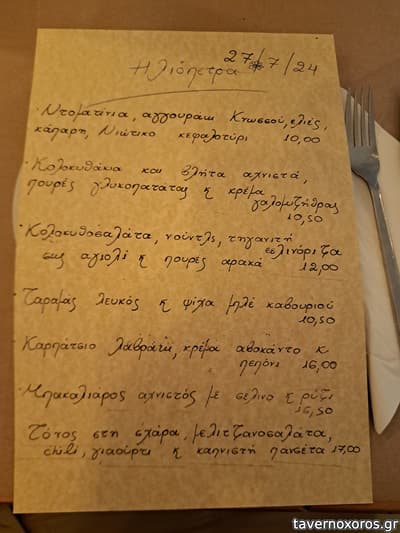 27/7/24
Ηλιόπετρα
· Ντοματίνια, αγγουράκι Κνωσσού, ελιές,
κάπαρη, Νιώτικο κεφαλοτύρι 10,00
· Κολοκυθάκια και βλήτα αχνιστά,
πουρές γλυκοπατάτας κ κρέμα
γαλομυζήθρας
10,50
· Κολοκυθοσαλάτα, νούντλς, τηγανιτή
σελινόριζα
σως αγιολί κ πουρές αρακά 12,00
· Ταραμάς λευκός κ ψίχα μπλέ καβουριού
10,50
· Καρπάτσιο λαβράκι, κρέμα αβοκάντο κ
πεπόνι 16,00
· Μπακαλιάρος αχνιστός με σέλινο κ ρύζι
16,50
· Τόνος στη σχάρα, μελιτζανοσαλάτα,
chili, γιαούρτι κ καπνιστή πανσέτα 17,00
www.tavernoxoros.gr